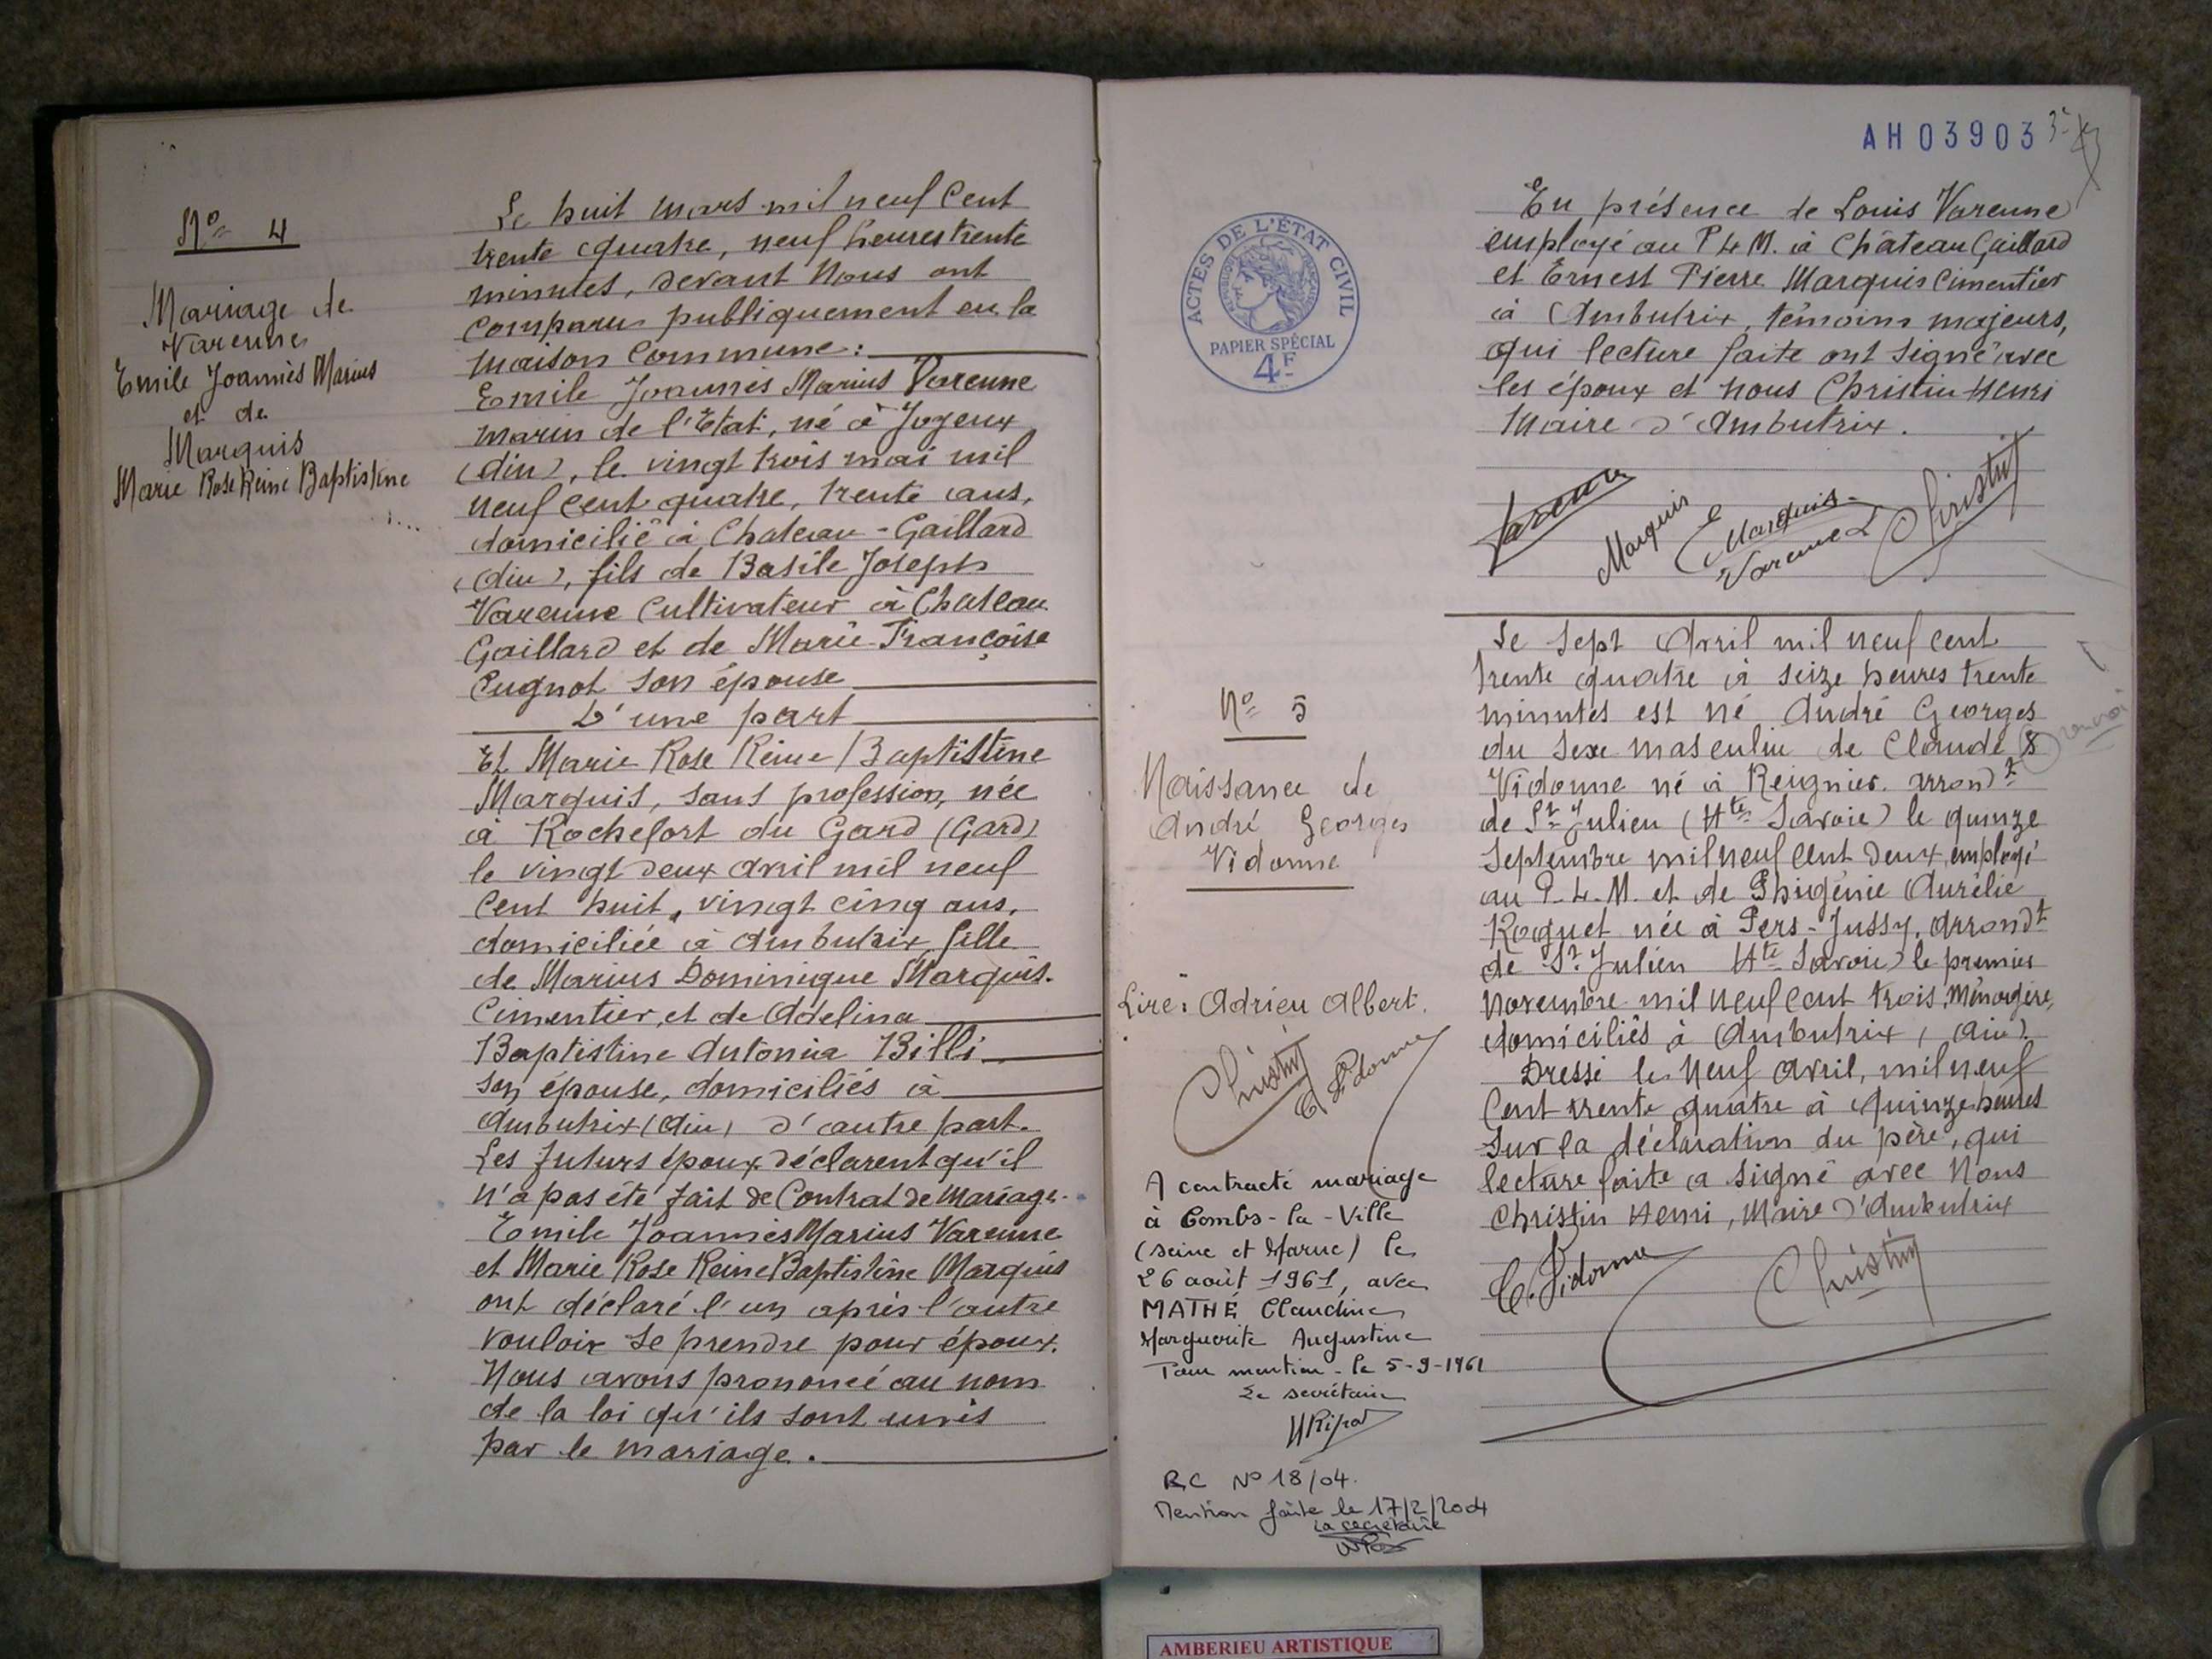 Nº 4
Mariage de
Varenne
Emile Joannès Marius
et de
Marquis
Marie Rose Reine Baptistine
Le huit mars mil neuf cent
trente quatre, neuf heures trente
minutes, devant Nous ont
comparu publiquement en la
maison commune :
Emile Joannès Marius Varenne
marin de l'Etat, né à Joyeux
(Ain), le vingt trois mai mil
neuf cent quatre, trente ans,
domicilié à Chateau-Gaillard
(Ain), fils de Basile Joseph
Varenne Cultivateur à Chateau
Gaillard et de Marie-Françoise
Cugnot son épouse
D'une part
Et Marie Rose Reine Baptistine
Marquis, sans profession, née
à Rochefort du Gard (Gard)
le vingt deux avril mil neuf
cent huit, vingt cinq ans,
domiciliée à Ambutrix, fille
de Marius Dominique Marquis.
Cimentier, et de Adelina
Baptistine Antonia Billi
son épouse, domiciliés à
Ambutrix (Ain) d'autre part.
Les futurs époux déclarent qu'il
n'a pas été fait de Contrat de Mariage.
Emile Joannès Marius Varenne
et Marie Rose Reine Baptistine Marquis
ont déclaré l'un après l'autre
vouloir se prendre pour époux.
Nous avons prononcé au nom
de la loi qu'ils sont unis
par le mariage.
AH03903
ACTES DE L'ÉTAT CIVIL
RÉPUBLIQUE FRANÇAISE
PAPIER SPÉCIAL
4F
En présence de Louis Varenne
employé au P L M. à Château Gaillard
et Ernest Pierre Marquis Cimentier
à Ambutrix, témoins majeurs,
qui lecture faite ont signé avec
les époux et nous Christin Henri
Maire d'Ambutrix.
Varenne
Marquis
E Marquis
Varenne L
Christin
Nº 5
Naissance de
André Georges
Vidonne
Le sept Avril mil neuf cent
trente quatre à seize heures trente
minutes est né André Georges
du sexe masculin de Claude &
renvoi
Vidonne né à Reignier arrondt
de St Julien (Hte Savoie) le quinze
septembre mil neuf cent deux, employé
au P.L.M. et de Iphigénie Aurélie
Roguet née à Pers-Jussy, arrondt
de St Julien Hte Savoie) le premier
novembre mil neuf cent trois, Ménagère,
domiciliés à Ambutrix, (Ain).
Dressé le Neuf avril, mil neuf
Cent trente quatre à quinze heures
sur la déclaration du père, qui
lecture faite a signé avec Nous
Christin Henri, Maire d'Ambutrix
C. Vidonne
Christin
Lire : Adrien Albert.
Christin
C Vidonne
A contracté mariage
à Combs-la-Ville
(Seine et Marne) le
26 août 1961, avec
MATHÉ Claudine
Marguerite Augustine
Pour mention - le 5-9-1961
Le secrétaire
RC Nº 18/04.
Mention faite le 17/2/2004
La secrétaire
AMBERIEU ARTISTIQUE